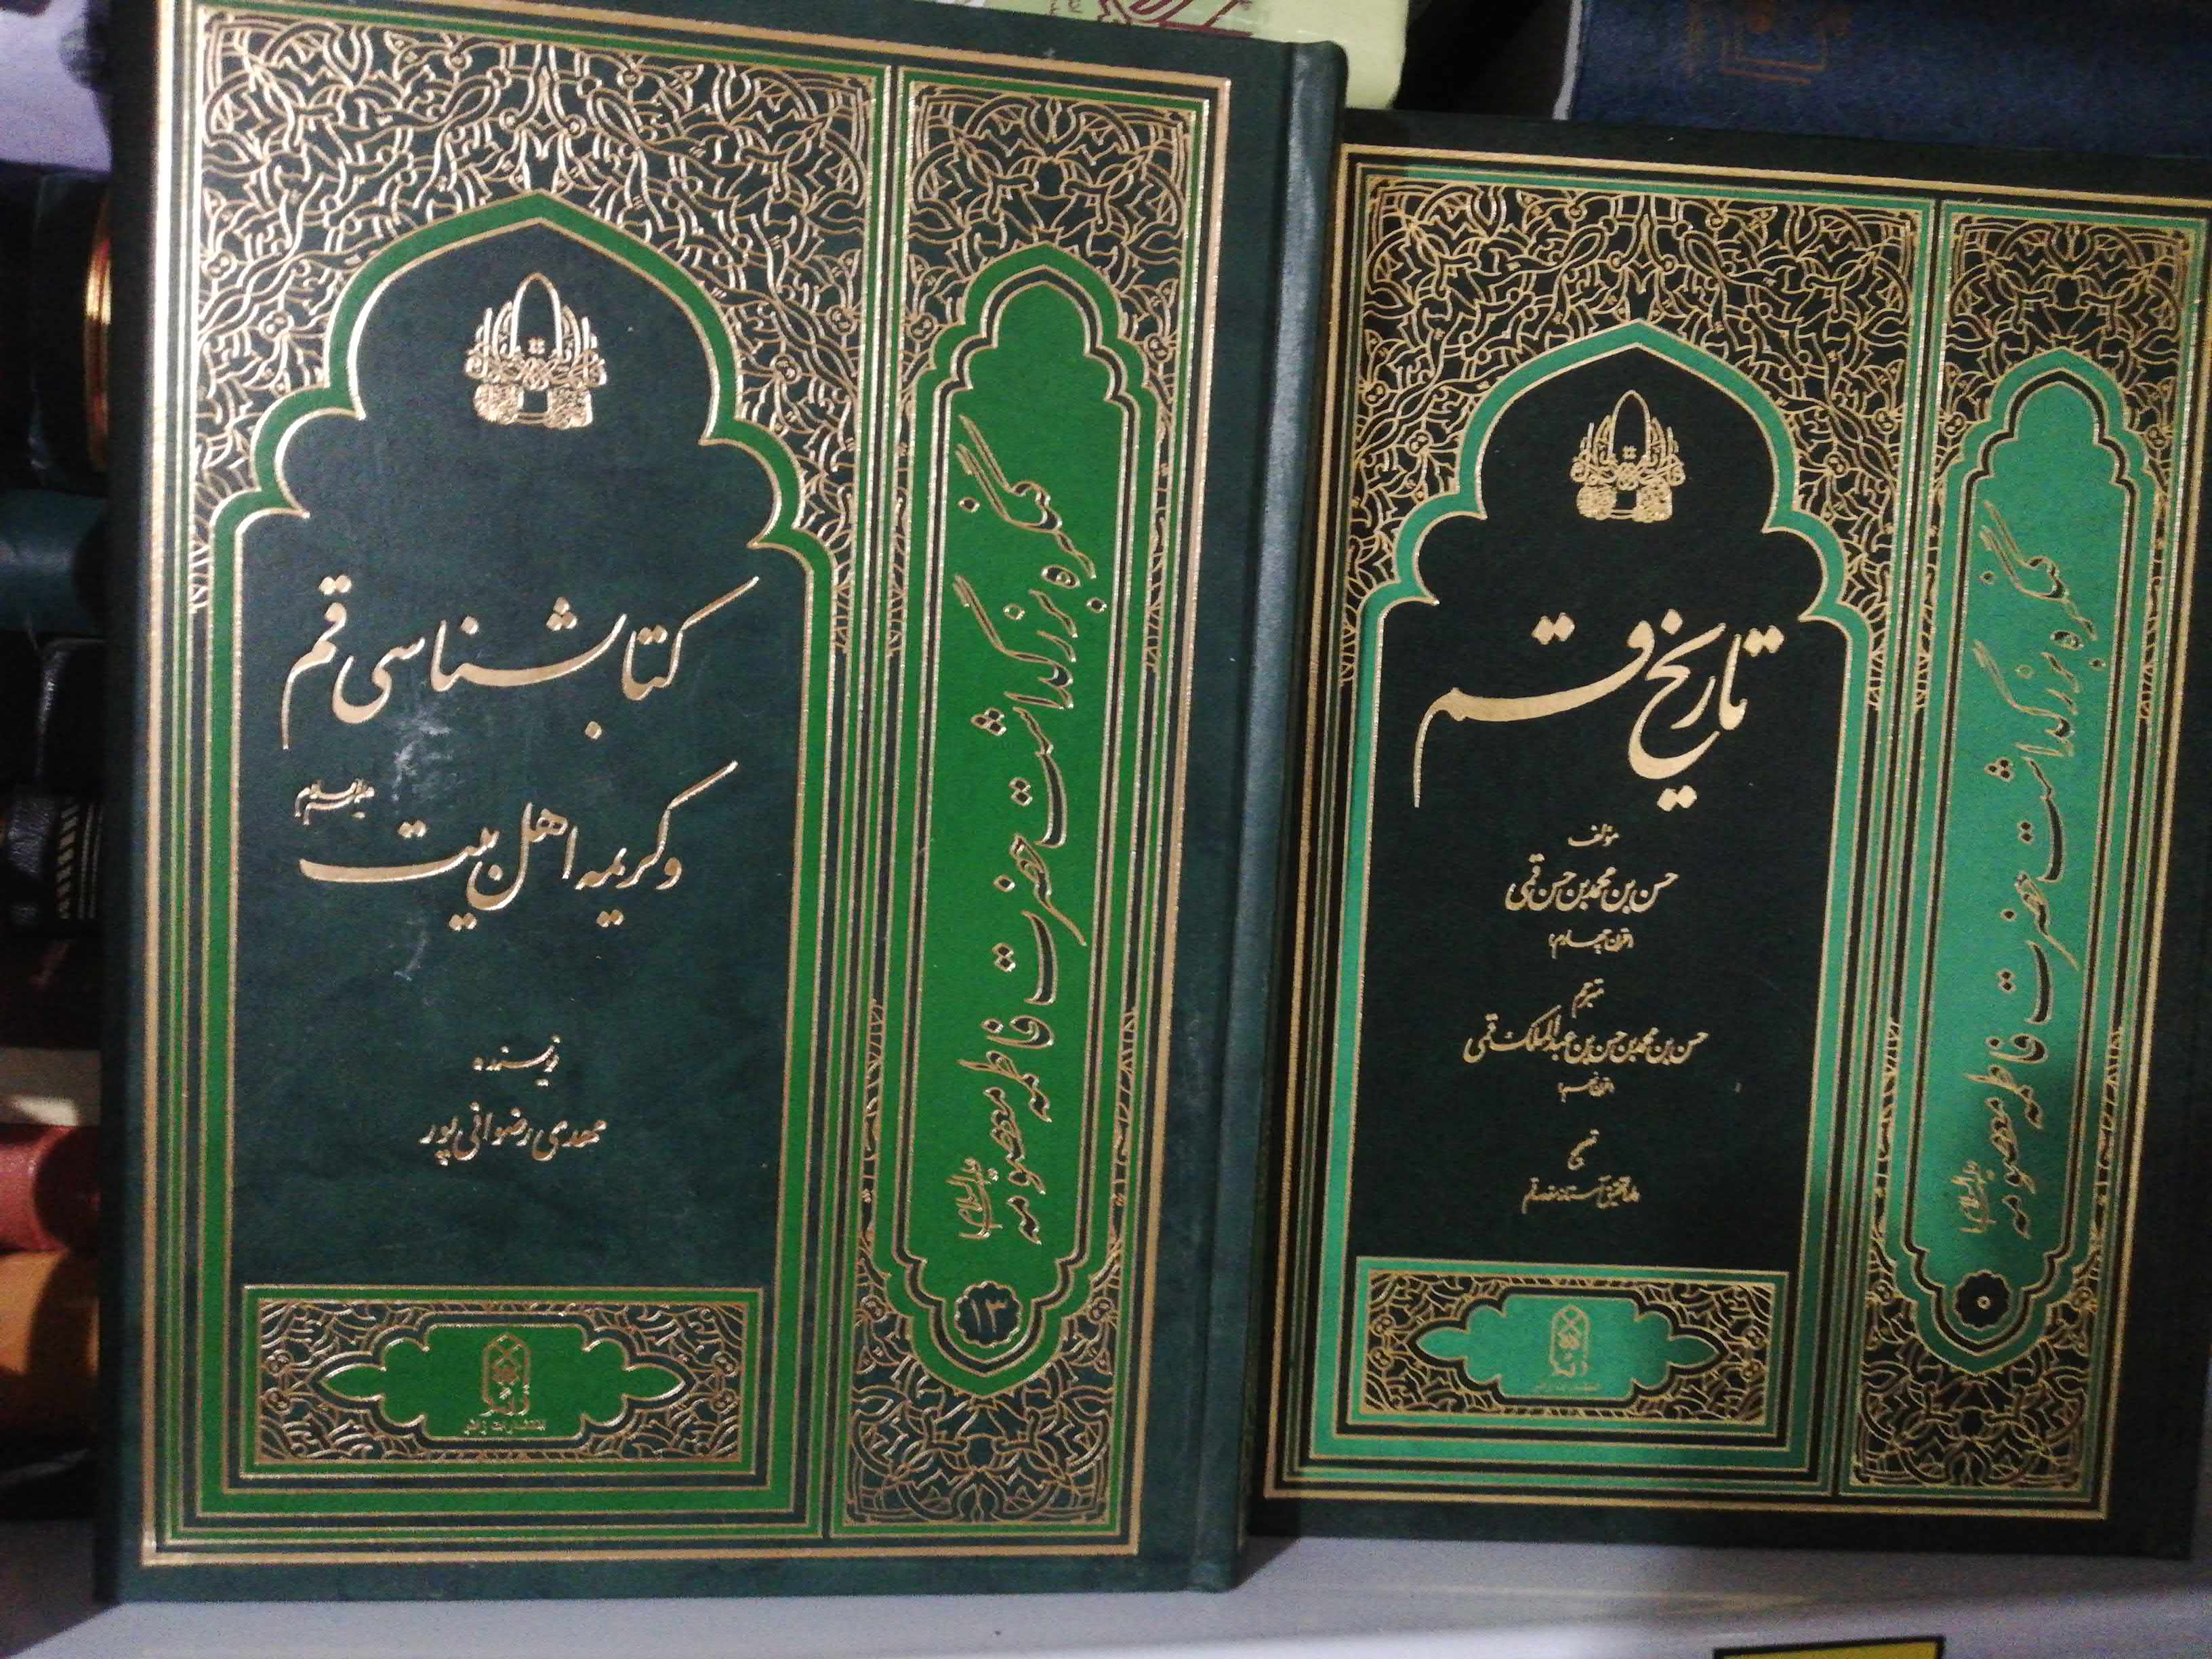 کتابشناسی قم
و کریمه اهل بیت علیهم السلام
نویسنده
مهدی رضوانی پور
انتشارات زائر
کنگره بزرگداشت حضرت فاطمه معصومه علیها السلام
۱۳
تاریخ قم
مؤلف
حسن بن محمد بن حسن قمی
(قرن چهارم)
مترجم
حسن بن محمد بن حسن بن عبدالملک قمی
تصحیح
واحد تحقیق آستانه مقدسه قم
انتشارات زائر
کنگره بزرگداشت حضرت فاطمه معصومه علیها السلام
۵